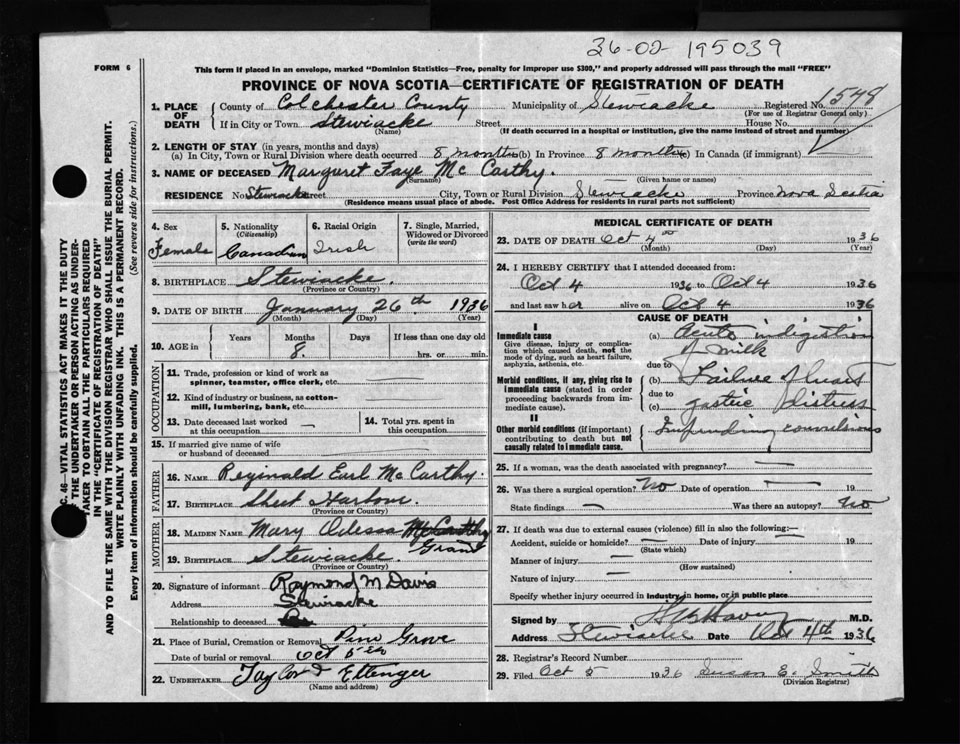 36-02-195039
FORM 6
This form if placed in an envelope, marked "Dominion Statistics—Free, penalty for improper use $300," and properly addressed will pass through the mail "FREE"
PROVINCE OF NOVA SCOTIA—CERTIFICATE OF REGISTRATION OF DEATH
1. PLACE OF DEATH County of Colchester County Municipality of Stewiacke Registered No. 1549
(For use of Registrar General only)
If in City or Town Stewiacke Street House No.
(Name) (If death occurred in a hospital or institution, give the name instead of street and number)
2. LENGTH OF STAY (in years, months and days)
(a) In City, Town or Rural Division where death occurred 8 months (b) In Province 8 months (c) In Canada (if immigrant)
3. NAME OF DECEASED Margaret Faye McCarthy.
(Surname) (Given name or names)
RESIDENCE No. Stewiacke Street City, Town or Rural Division Stewiacke Province Nova Scotia
(Residence means usual place of abode. Post Office Address for residents in rural parts not sufficient)
4. Sex Female
5. Nationality (Citizenship) Canadian
6. Racial Origin Irish
7. Single, Married, Widowed or Divorced (write the word)
8. BIRTHPLACE Stewiacke.
(Province or Country)
9. DATE OF BIRTH January 26th 1936
(Month) (Day) (Year)
10. AGE in Years Months 8. Days If less than one day old
hrs. or min.
OCCUPATION
11. Trade, profession or kind of work as
spinner, teamster, office clerk, etc. —
12. Kind of industry or business, as cotton-
mill, lumbering, bank, etc. —
13. Date deceased last worked at this occupation —
14. Total yrs. spent in this occupation
15. If married give name of wife
or husband of deceased
FATHER
16. NAME Reginald Earl McCarthy.
17. BIRTHPLACE Sheet Harbour.
(Province or Country)
MOTHER
18. MAIDEN NAME Mary Odessa McCarthy
Grant
19. BIRTHPLACE Stewiacke.
(Province or Country)
20. Signature of informant Raymond M. Davis
Address Stewiacke
Relationship to deceased
21. Place of Burial, Cremation or Removal Pine Grove
Date of burial or removal Oct 5
22. UNDERTAKER Taylor & Ettenger
(Name and address)
MEDICAL CERTIFICATE OF DEATH
23. DATE OF DEATH Oct 4 1936
(Month) (Day) (Year)
24. I HEREBY CERTIFY that I attended deceased from:
Oct 4 1936 to Oct 4 1936
and last saw her alive on Oct 4 1936
CAUSE OF DEATH
I
Immediate cause
Give disease, injury or complica-
tion which caused death, not the
mode of dying, such as heart failure,
asphyxia, asthenia, etc.
(a) Acute indigestion
of milk
due to
Morbid conditions, if any, giving rise to
immediate cause (stated in order
proceeding backwards from im-
mediate cause).
(b) Failure of heart
due to
(c) gastric distress
II
Other morbid conditions (if important)
contributing to death but not
causally related to immediate cause.
Impending convulsions
25. If a woman, was the death associated with pregnancy? —
26. Was there a surgical operation? No Date of operation — 19
State findings — Was there an autopsy? No
27. If death was due to external causes (violence) fill in also the following:—
Accident, suicide or homicide? — Date of injury — 19
(State which)
Manner of injury —
(How sustained)
Nature of injury —
Specify whether injury occurred in industry, in home, or in public place
Signed by M.D.
Address Stewiacke Date Oct 4th 1936
28. Registrar's Record Number
29. Filed Oct 5 1936 Susan E. Smith
(Division Registrar)
C. 46—VITAL STATISTICS ACT MAKES IT THE DUTY
THE UNDERTAKER OR PERSON ACTING AS UNDER-
TAKER TO OBTAIN ALL THE PARTICULARS REQUIRED
IN THE "CERTIFICATE OF REGISTRATION OF DEATH"
AND TO FILE THE SAME WITH THE DIVISION REGISTRAR WHO SHALL ISSUE THE BURIAL PERMIT.
WRITE PLAINLY WITH UNFADING INK. THIS IS A PERMANENT RECORD.
Every item of information should be carefully supplied. (See reverse side for instructions.)